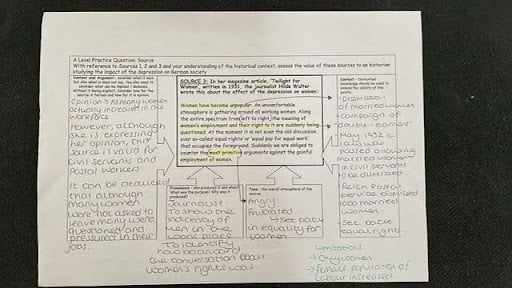 A Level Practice Question: Source
With reference to Sources 1, 2 and 3 and your understanding of the historical context, assess the value of these sources to an historian
studying the impact of the depression on German society
Content and Argument: consider what it says
but also what it does not say. You also need to
consider what can be implied / deduced,
without it being explicit. Consider how far the
source is factual and how far it is opinion.
Opinion? As many women
actually increased in the
workforce
However, although
she is expressing
her opinion, this
source is valid for
civil servants and
Postal workers
It can be deduced
that although
many women
were not asked to
leave many were
questioned and
pressured in their
jobs.
SOURCE 3: In her magazine article, 'Twilight for
Women', written in 1931, the journalist Hilde Walter
wrote this about the effect of the depression on women:
Women have become unpopular. An uncomfortable
atmosphere is gathering around all working women. Along
the entire spectrum from left to right, the meaning of
women's employment and their right to it are suddenly being
questioned. At the moment it is not even the old discussion
over so-called 'equal rights' or 'equal pay for equal work'
that occupies the foreground. Suddenly we are obliged to
counter the most primitive arguments against the gainful
employment of women.
Provenance - who produced it and when?
What was the purpose? Why was it
produced?
Journalist
To show the
of
men in the
work place
To identify
how backward
the conversation about
women's rights was.
Tone - the overall atmosphere of the
source
Angry
frustrated
↳ set back
in equality for
women.
Context - Contextual
knowledge should be used to
assess the validity of the
source
- Dismissal
of married women
- campaign of
'double-earners'
- May 1932 a
law was
passed allowing
married women
in civil servants
to be dismissed
- Reich Postal
service dismissed
1000 married
women
- Set back
equal rights
Limitations
→ Only women
→ female population of
labour increased.